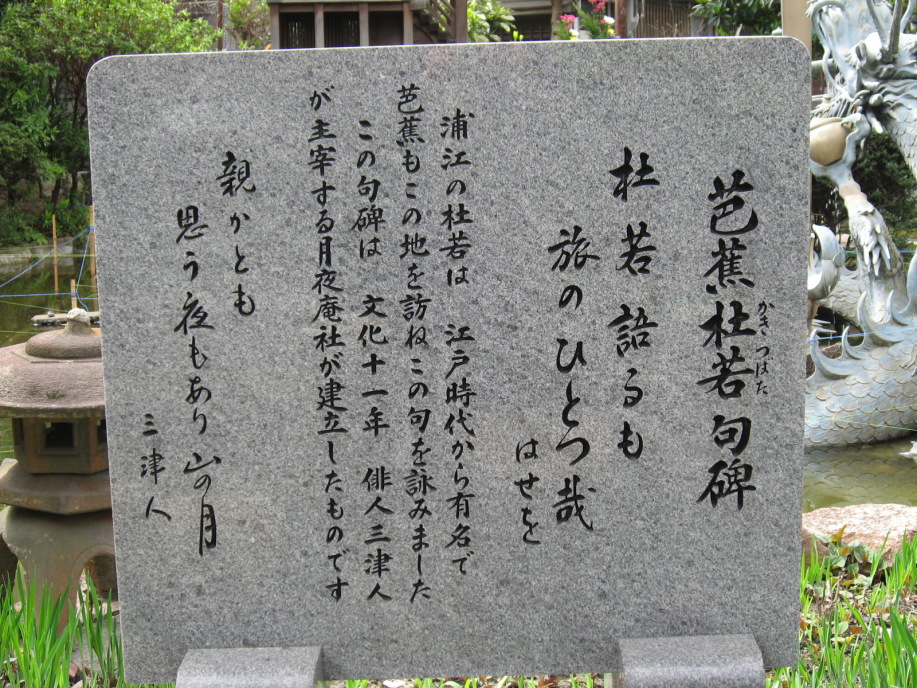 芭蕉杜若句碑
かきつばた
杜若語るも
旅のひとつ哉
はせを
浦江の杜若は 江戸時代から有名で
芭蕉もこの地を訪ねこの句を詠みました
この句碑は 文化十一年 俳人三津人
が主宰する月夜庵社が建立したものです
親かとも
思う夜もあり山の月
三津人